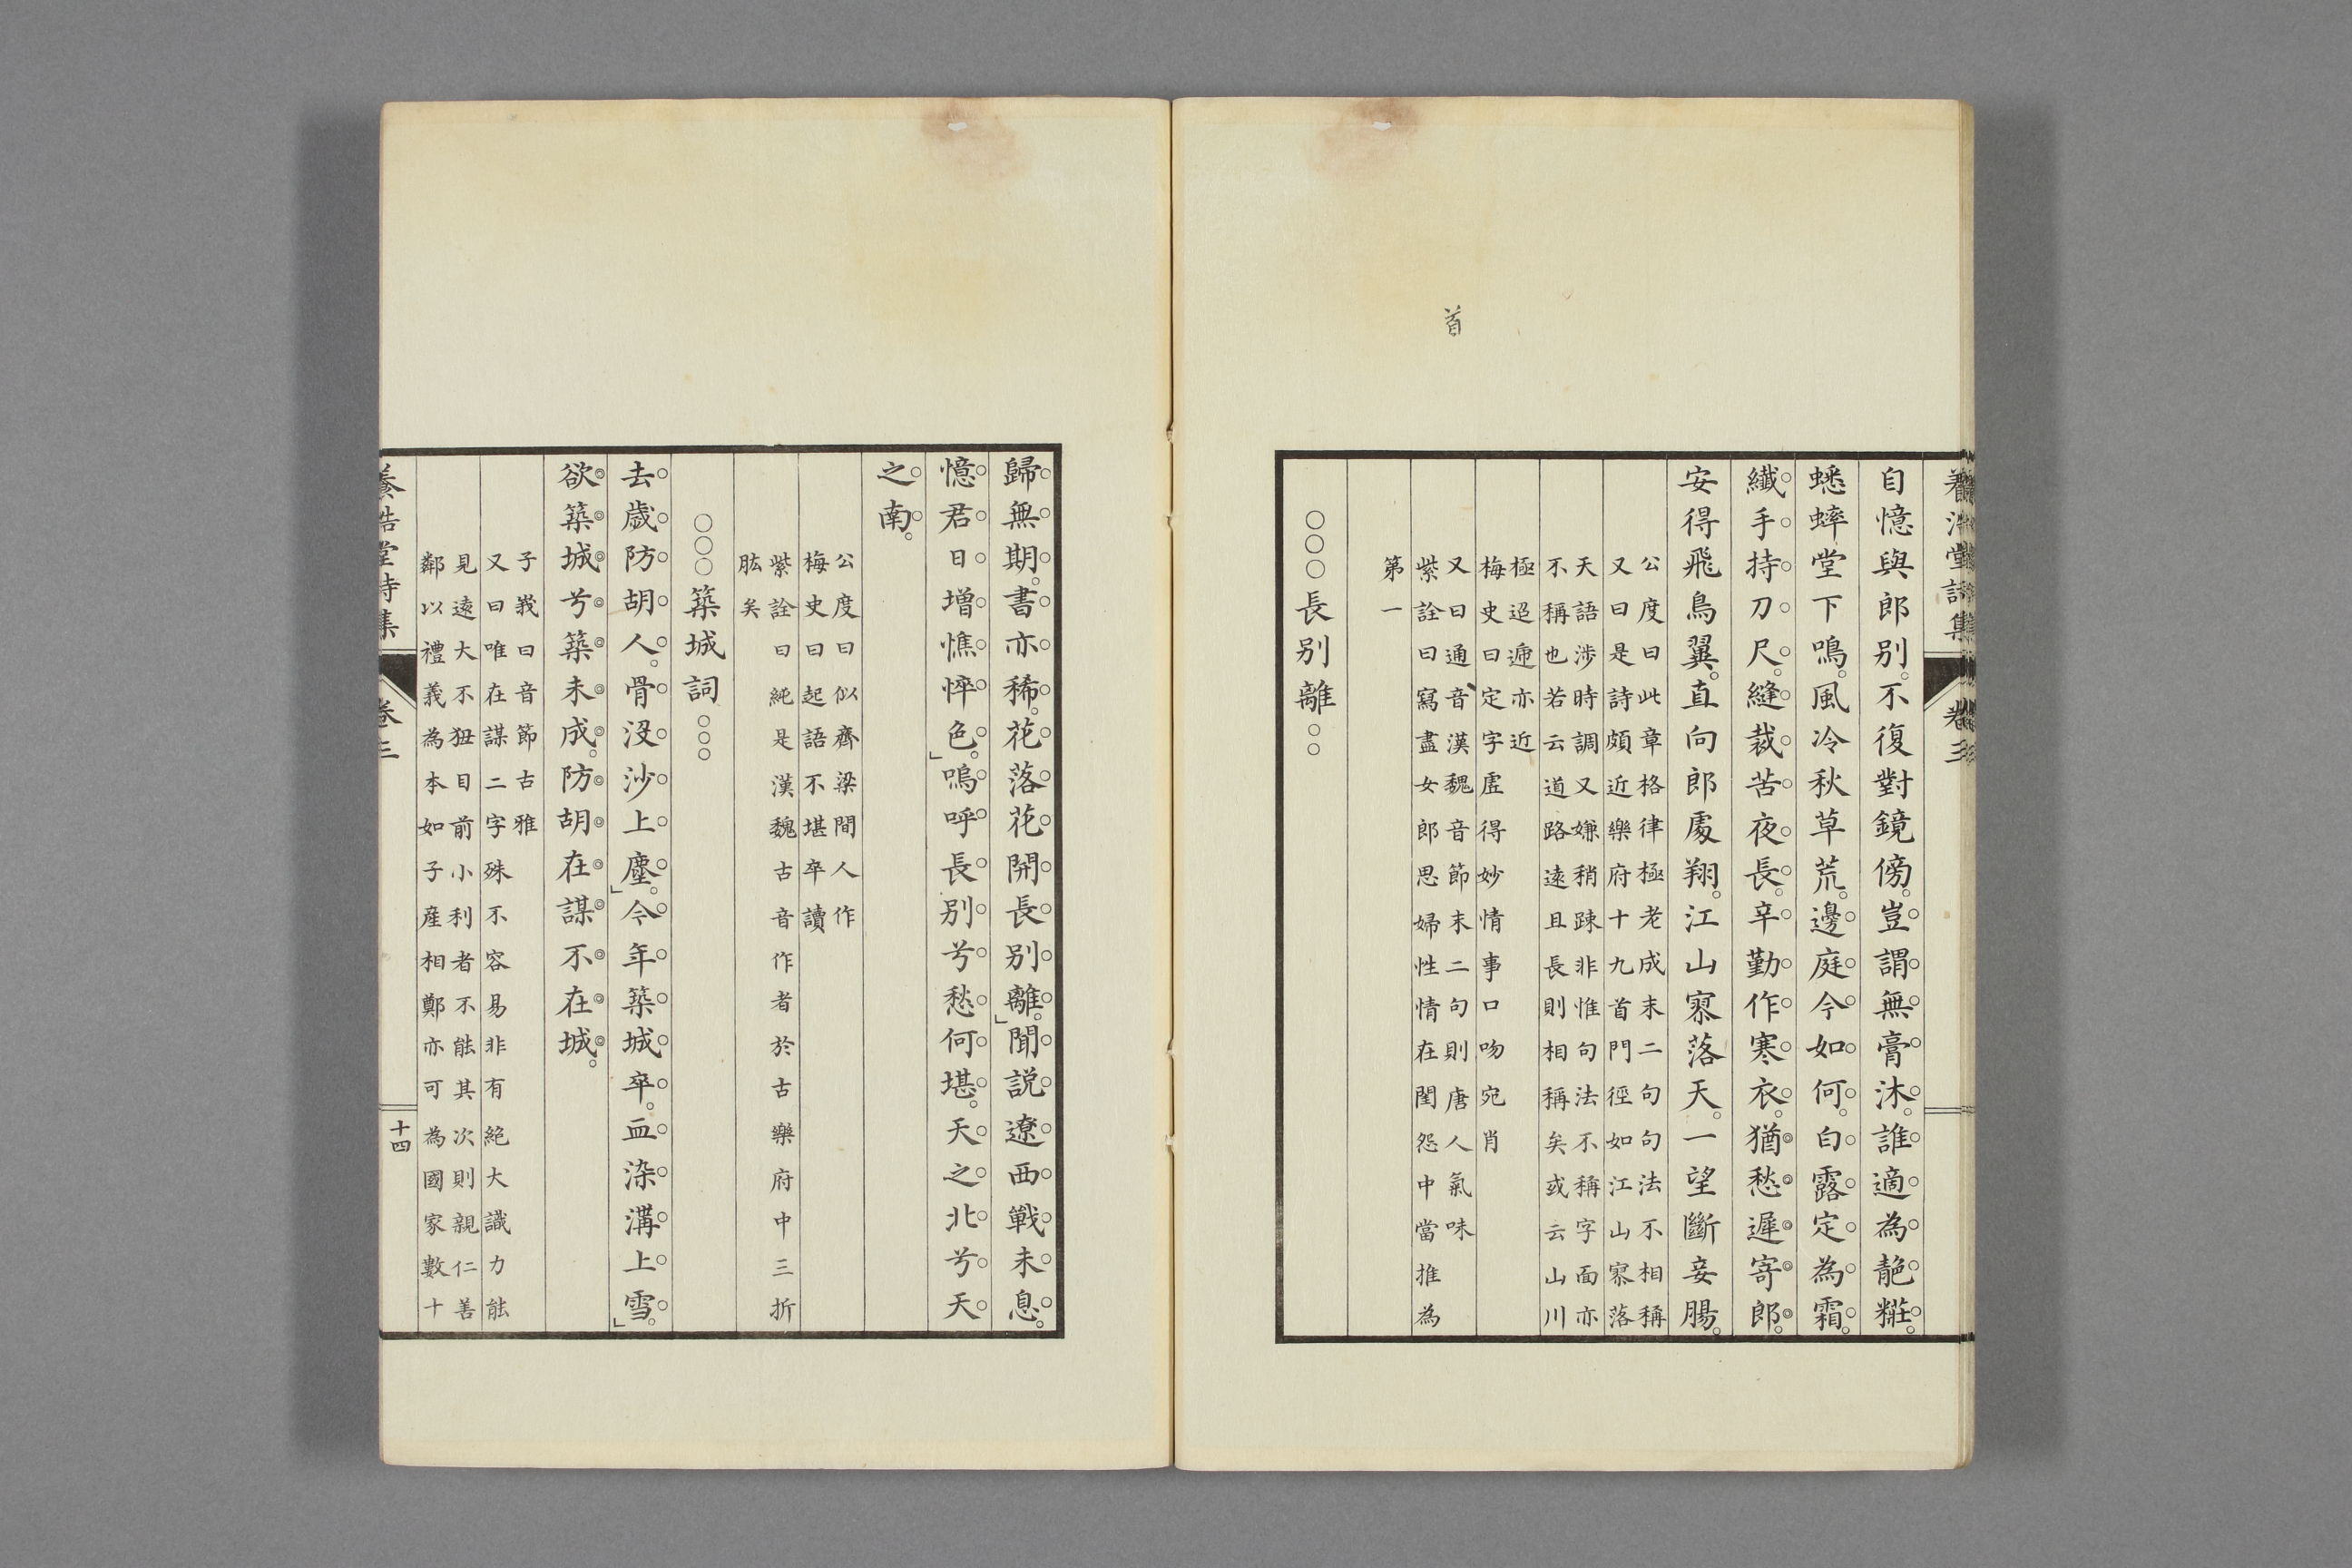 首
自憶與郎别。不復對鏡傍。豈謂無膏沐。誰適為靘糚。
蟋蟀堂下鳴。風冷秋草荒。邊庭今如何。白露定為霜。
纖手持刀尺。縫裁苦夜長。辛勤作寒衣。猶愁遲寄郎。
安得飛鳥翼。直向郎處翔。江山寥落天。一望斷妾腸。
公度曰此章格律極老成末二句句法不相稱
又曰是詩頗近樂府十九首門徑如江山寥落
天語涉時調又嫌稍踈非惟句法不稱字面亦
不稱也若云道路遠且長則相稱矣或云山川
極迢遞亦近
梅史曰定字虛得妙情事口吻宛肖
又曰通音漢魏音節末二句則唐人氣味
紫詮曰寫盡女郎思婦性情在閨怨中當推為
第一
○○○長别離○○
歸無期。書亦稀。花落花開長别離。」聞説遼西戰未息。
憶君日增憔悴色。」嗚呼長别兮愁何堪。天之北兮天
之南。
公度曰似齊梁間人作
梅史曰起語不堪卒讀
紫詮曰純是漢魏古音作者於古樂府中三折
肱矣
○○○築城詞○○○
去歲防胡人。骨沒沙上塵。」今年築城卒。血染溝上雪。」
欲築城兮築未成。防胡在謀不在城。
子峩曰音節古雅
又曰唯在謀二字殊不容易非有絕大識力能
見遠大不狃目前小利者不能其次則親仁善
鄰以禮義為本如子產相鄭亦可為國家數十
卷三
十四